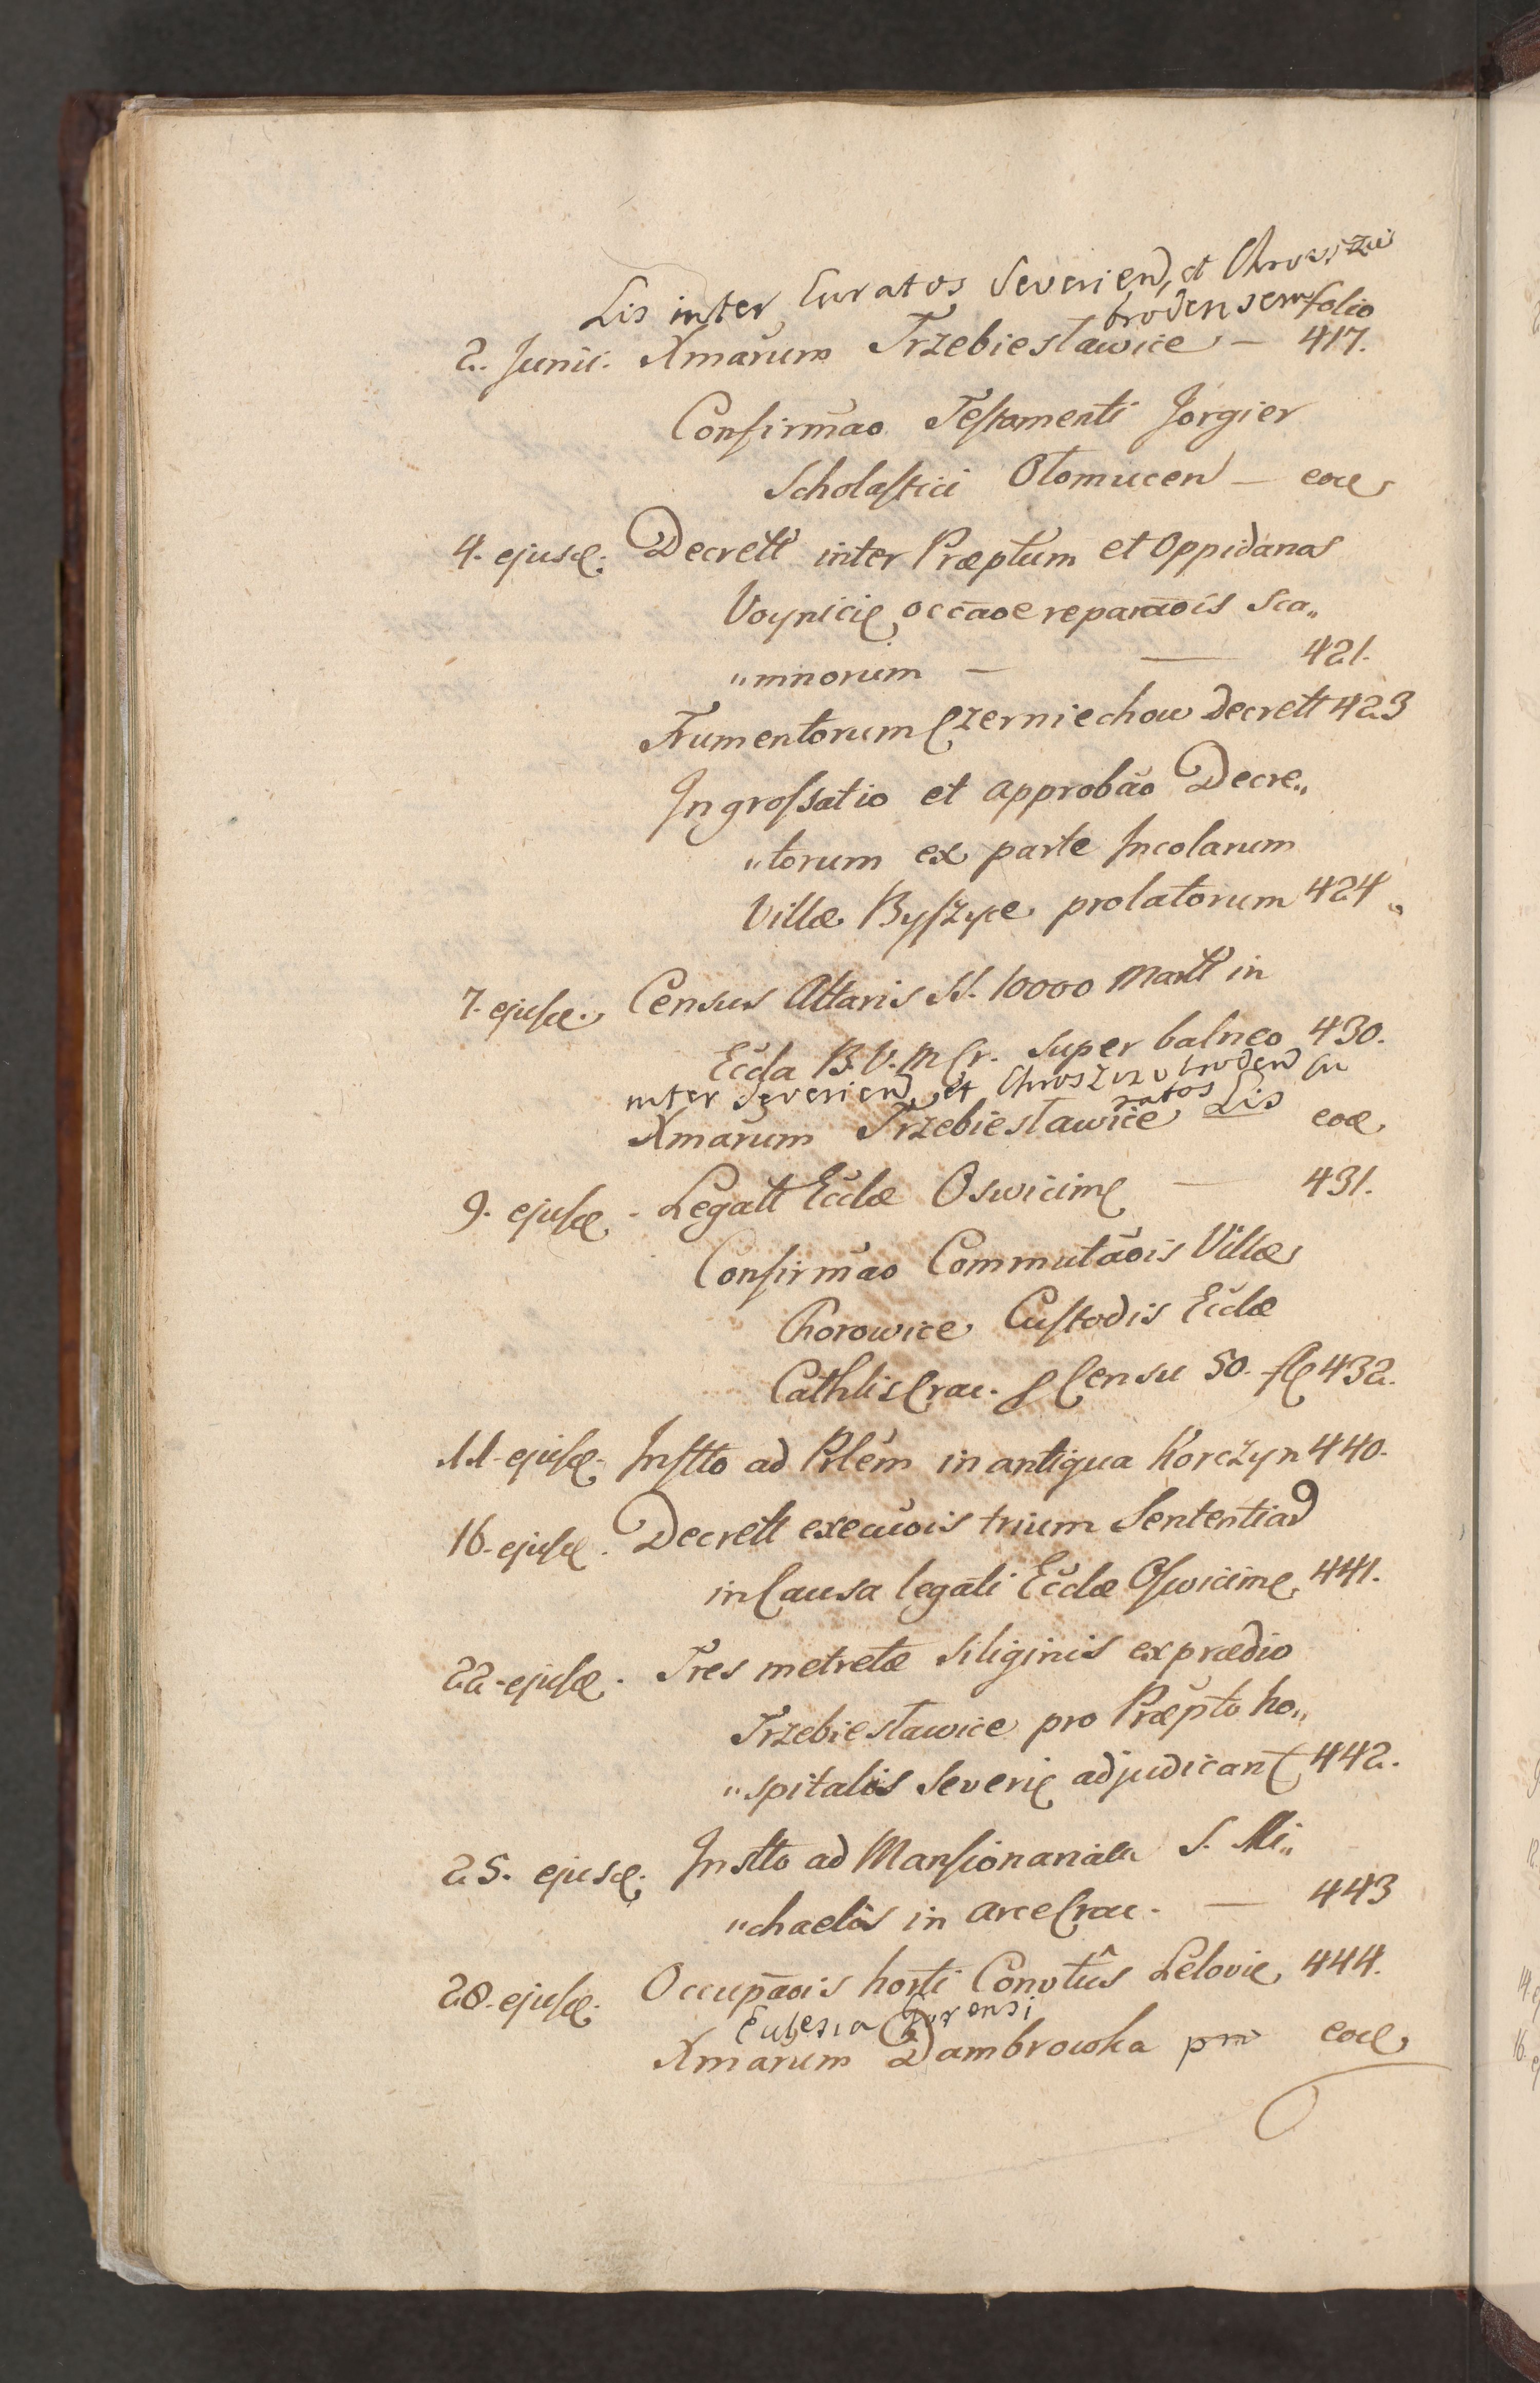 Lis inter Curatos Severien et Chroszczo
brodensem folio
2. Junii. Xmarum Trzebiesławice — 417.
Confirmāo Testamenti Jorgier
Scholastici Olomucen — eod
4. ejusd. Decrett inter Præptum et Oppidanos
Voynicien occāoe reparāois Sca„
„mnorum — — 421.
Frumentorum Czerniechow Decrett 423
Ingrossatio et approbāo Decre„
„torum ex parte Incolarum
Villæ Byszyce prolatorum 424„
7. ejusd. Census Altaris SS. 10000 Martt in
Eccla B.V.M. Cr. super balneo 430.
inter Severien et Chroszczobroden Cu
ratos Lis
Xmarum Trzebiesławice eod
9. ejusd. Legatt Ecclæ Oswicimen — 431.
Confirmāo Commutāois Villæ
Chorowice Custodis Ecclæ
Cathlis Crac. p Censu 50. fl 432.
11. ejusd. Instto ad Pblem in antiqua Korczyn 440.
16. ejusd. Decrett execuōis trium Sententiar
in Causa legati Ecclæ Oswicimen 441.
22. ejusd. Tres metretæ siliginis ex prædio
Trzebiesławice pro Præpto ho„
„spitalis Severien adjudicant 442.
25. ejusd. Instto ad Mansionariam S. Mi„
„chaelis in arce Crac. — 443
28. ejusd. Occupāois horti Convtûs Lelovien 444.
Eclesia
Xmarum Dambrowka eod